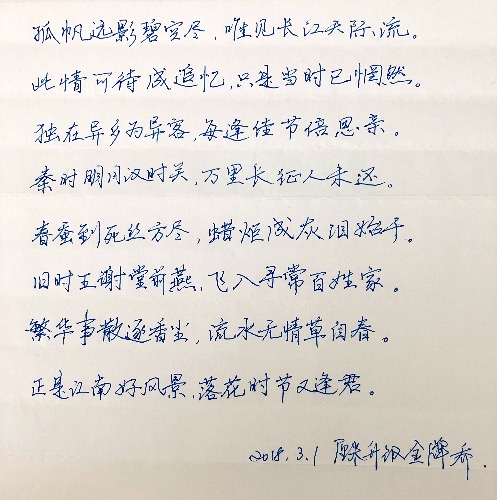 孤帆远影碧空尽，唯见长江天际流。
此情可待成追忆，只是当时已惘然。
独在异乡为异客，每逢佳节倍思亲。
秦时明月汉时关，万里长征人未还。
春蚕到死丝方尽，蜡炬成灰泪始干。
旧时王谢堂前燕，飞入寻常百姓家。
繁华事散逐香尘，流水无情草自春。
正是江南好风景，落花时节又逢君。
2018.3.1 升级金牌乔